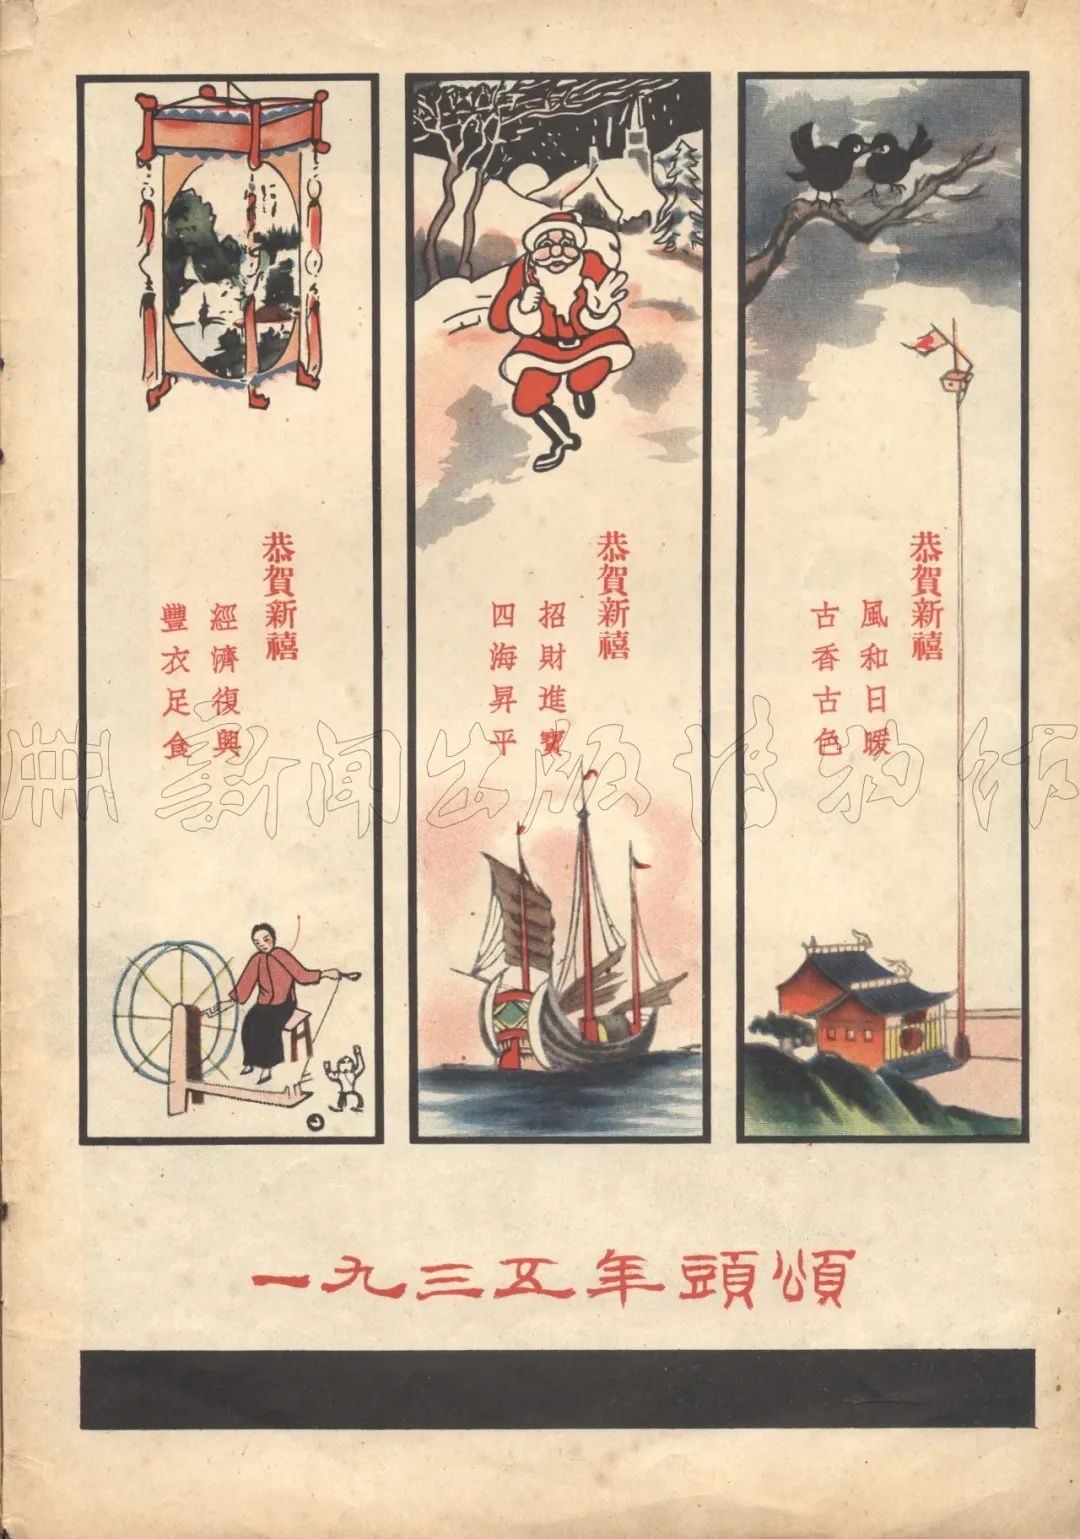 恭賀新禧
風和日暖
古香古色
恭賀新禧
招財進寶
四海昇平
恭賀新禧
經濟復興
豐衣足食
一九三五年頭頌
新闻出版博物馆